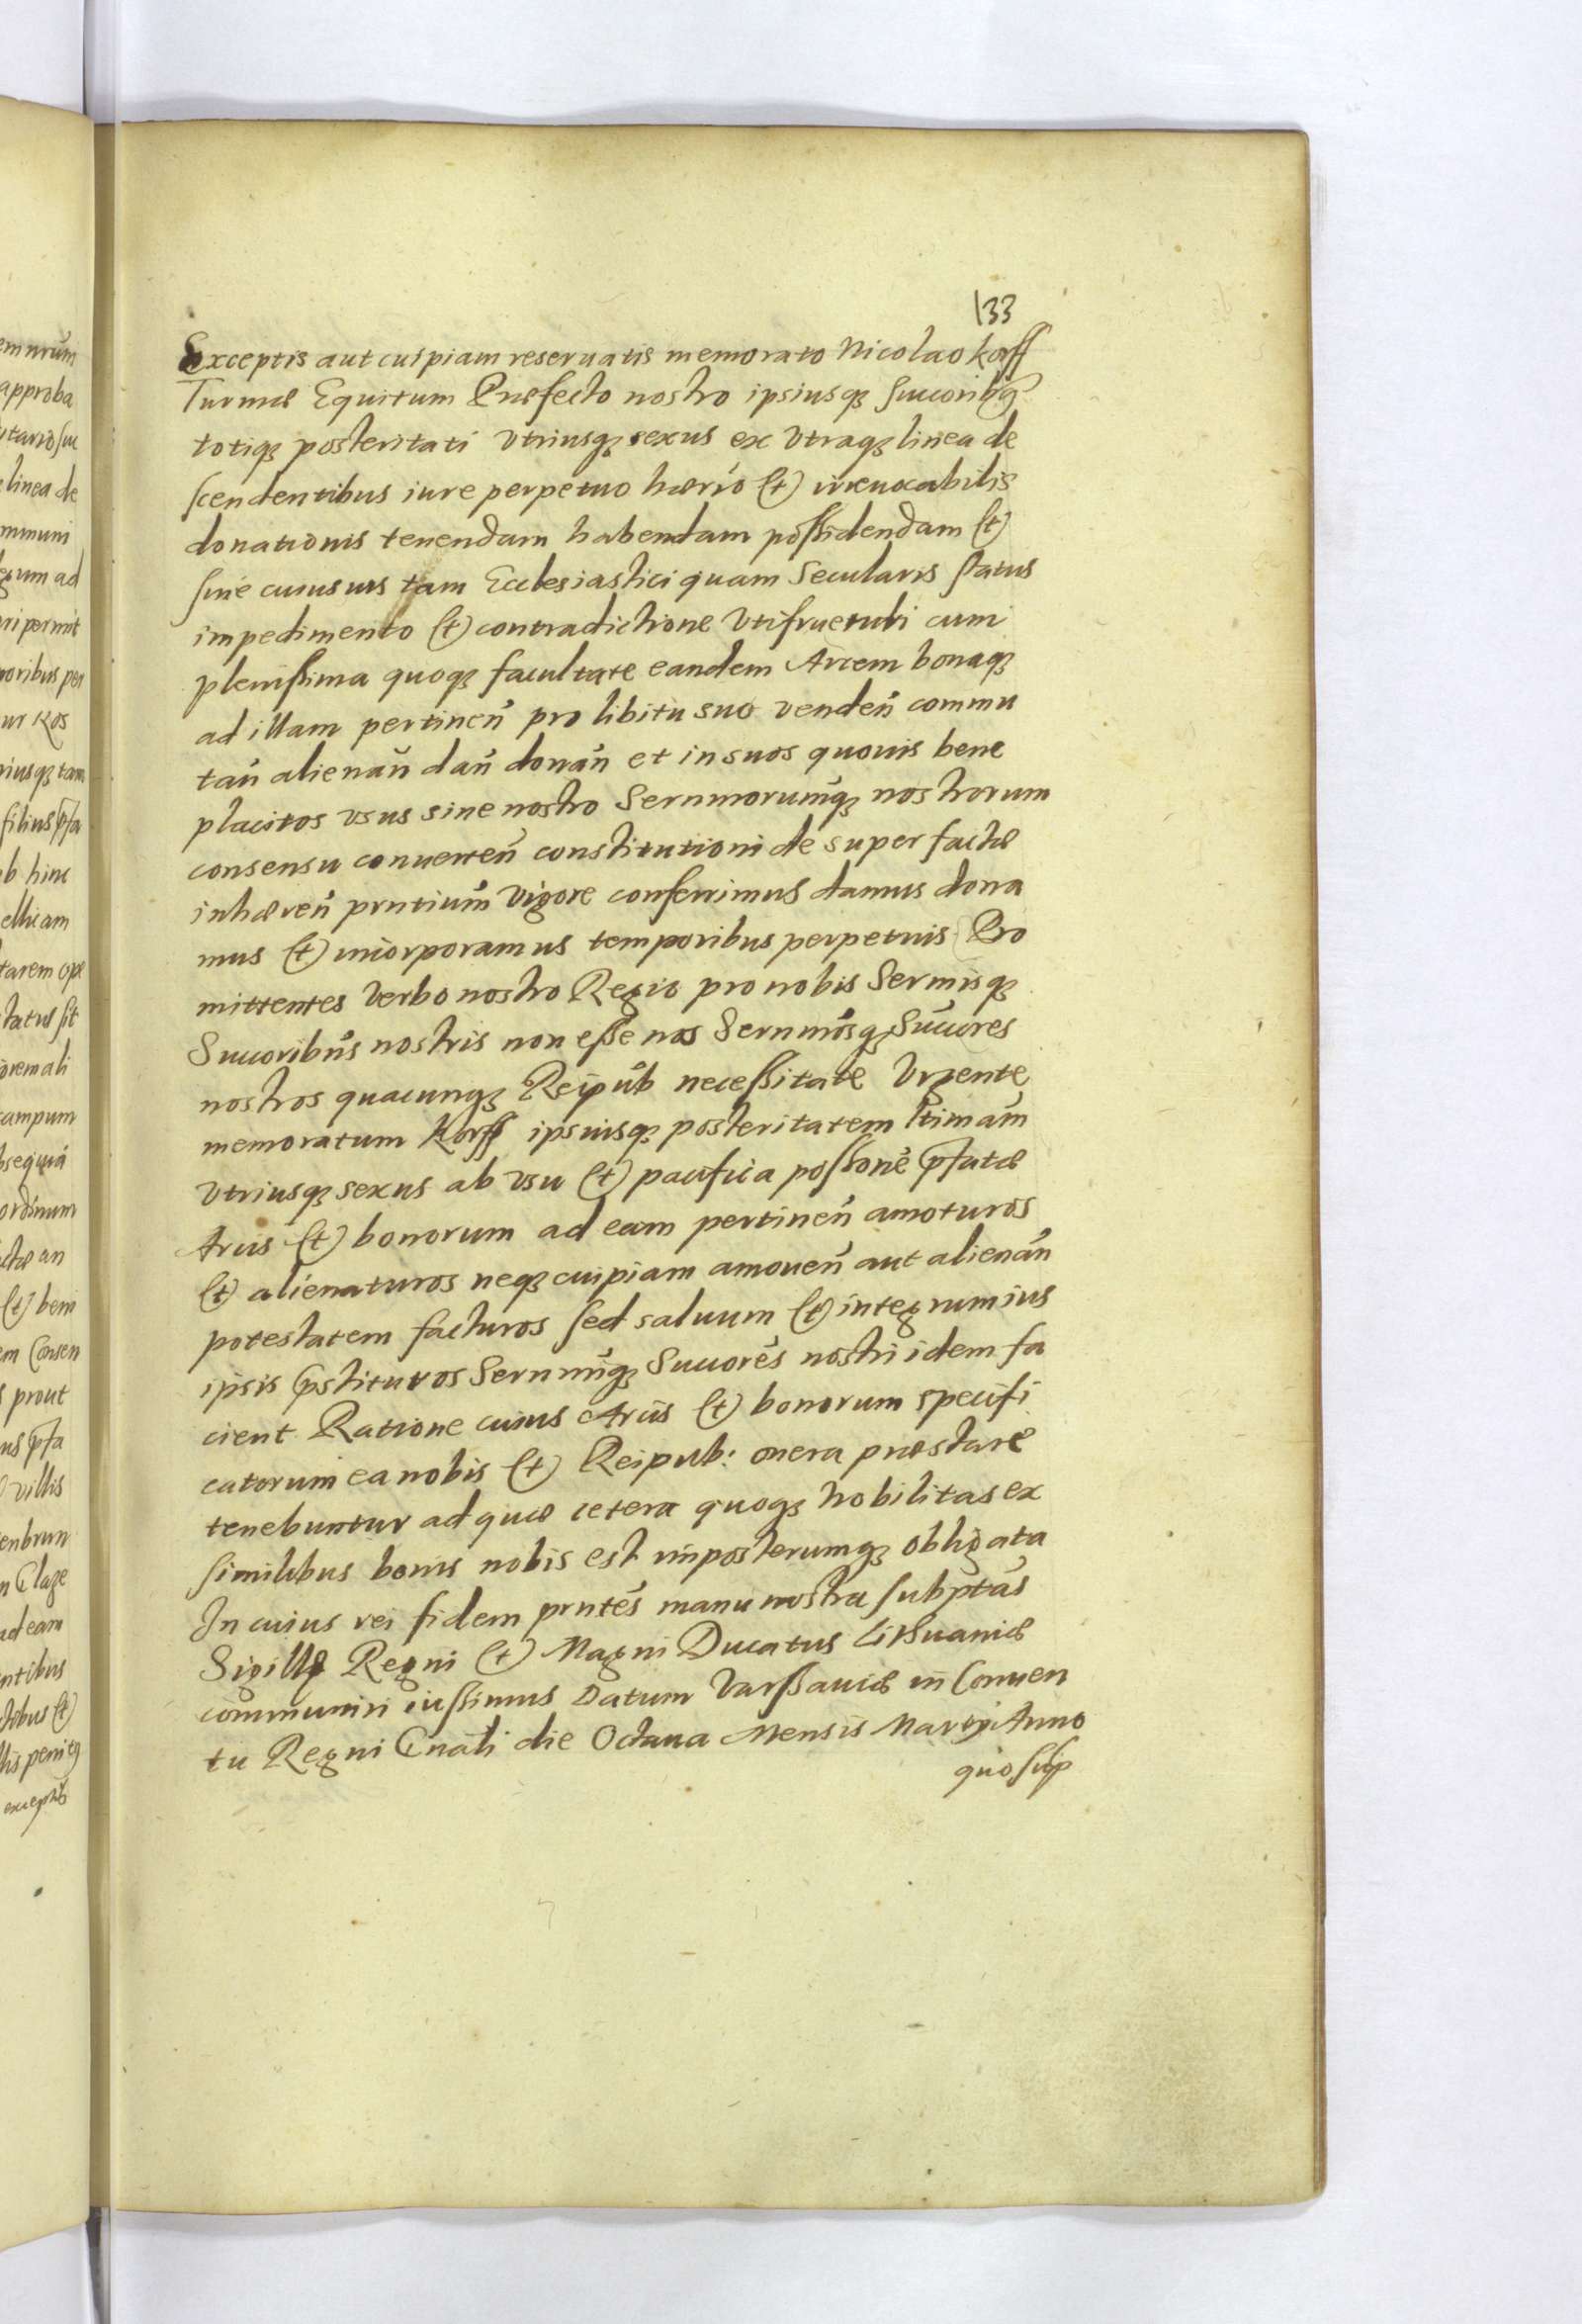 133
Exceptis aut cuipiam reseruatis memorato Nicolao Korff
Turmæ Equitum Præfecto nostro ipsiusq₃ succoribq₃
totiq₃ posteritati vtriusq₃ sexus ex vtraq₃ linea de
scendentibus iure perpetuo hærio et irreuocabilis
donationis tenendam habendam possidendam et
sine cuiusuis tam Ecclesiastici quam Secularis status
impedimento et contradictione vtifruendi cum
plenissima quoq₃ facultate eandem Arcem bonaq₃
ad illam pertineñ pro libitu suo vendeñ commu
tañ alienañ dañ donañ et in suos quouis bene
placitos vsus sine nostro Sernmorumq₃ nostrorum
consensu conuerteñ constitutioni de super factæ
inhæreñ prntium vigore conferrimus damus dona
mus et incorporamus temporibus perpetuis Pro
mittentes verbo nostro Regio pro nobis Sermisq₃
Succoribus nostris non esse nos Sernmosq₃ Succores
nostros quacunq₃ Reipub necessitate vrgente
memoratum Korff ipsiusq₃ posteritatem ltimam
vtriusq₃ sexus ab vsu et pacifica possone pfatæ
Arcis et bonorum ad eam pertineñ amoturos
et alienaturos neq₃ cuipiam amoueñ aut alienañ
potestatem facturos sed saluum et integrum ius
ipsis pstituros Sernmiq₃ Succores nostri idem fa
cient Ratione cuius Arcis et bonorum specifi
catorum ea nobis et Reipub: onera præstare
tenebuntur ad quæ cetera quoq₃ Nobilitas ex
similibus bonis nobis est inposterumq₃ obligata
In cuius rei fidem prntes manu nostra subptas
Sigillo Regni et Magni Ducatus Lithuaniæ
communiri iussimus Datum Varssauiæ in Conuen
tu Regni Gnali die Octaua Mensis Martÿ Anno
quo sup